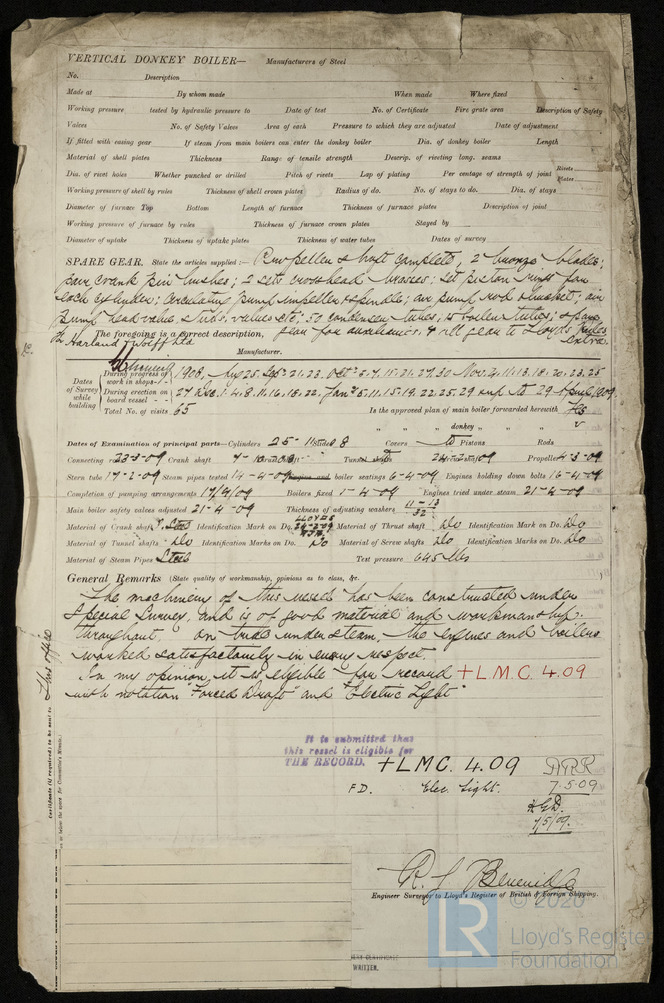 VERTICAL DONKEY BOILER— Manufacturers of Steel
No. Description
Made at By whom made When made Where fixed
Working pressure tested by hydraulic pressure to Date of test No. of Certificate Fire grate area Description of Safety
Valves No. of Safety Valves Area of each Pressure to which they are adjusted Date of adjustment
If fitted with easing gear If steam from main boilers can enter the donkey boiler Dia. of donkey boiler Length
Material of shell plates Thickness Range of tensile strength Descrip. of riveting long. seams
Dia. of rivet holes Whether punched or drilled Pitch of rivets Lap of plating Per centage of strength of joint Rivets Plates
Working pressure of shell by rules Thickness of shell crown plates Radius of do. No. of stays to do. Dia. of stays
Diameter of furnace Top Bottom Length of furnace Thickness of furnace plates Description of joint
Working pressure of furnace by rules Thickness of furnace crown plates Stayed by
Diameter of uptake Thickness of uptake plates Thickness of water tubes Dates of survey
SPARE GEAR. State the articles supplied:— Propeller shaft complete, 2 bronze blades;
pair crank pin bushes; 2 sets crosshead brasses; set piston rings for
each cylinder; circulating pump impeller & spindle; air pump rod & bucket; air
pump head valve, studs, valves etc; 50 condenser tubes, 15 boiler tubes; spare
gear for auxiliaries, & all gear to Lloyds rules extra.
The foregoing is a correct description,
Harland & Wolff Ltd Manufacturer.
Dates of Survey while building
During progress of work in shops - - 1908. Aug 25. Sept 21. 23. Oct 2. 5. 7. 15. 21. 27. 30 Nov. 4. 11. 13. 18. 20. 23. 25
During erection on board vessel - - 27 Dec. 1. 4. 8. 11. 16. 18. 22. Jan 5. 11. 15. 19. 22. 25. 29 up to 29 April 1909.
Total No. of visits 65
Is the approved plan of main boiler forwarded herewith Yes
" " " donkey " " "
Dates of Examination of principal parts— Cylinders 25-11-08 Slides Covers do Pistons Rods
Connecting rods 23-3-09 Crank shaft Thrust shaft Tunnel shafts Screw shaft 24-2-09 Propeller 4-3-09
Stern tube 17-2-09 Steam pipes tested 14-4-09 Engine and boiler seatings 6-4-09 Engines holding down bolts 16-4-09
Completion of pumping arrangements 17/4/09 Boilers fixed 1-4-09 Engines tried under steam 21-4-09
Main boiler safety valves adjusted 21-4-09 Thickness of adjusting washers 11-13 / 32
Material of Crank shaft Steel Identification Mark on Do. Material of Thrust shaft Do Identification Mark on Do. Do
Material of Tunnel shafts Do Identification Marks on Do. Do Material of Screw shafts Do Identification Marks on Do. Do
Material of Steam Pipes Steel Test pressure 645 lbs
General Remarks (State quality of workmanship, opinions as to class, &c.
The machinery of this vessel has been constructed under
Special Survey, and is of good material and workmanship
throughout. On trials under steam, the engines and boilers
worked satisfactorily in every respect.
In my opinion, it is eligible for record + L.M.C. 4.09
with notation "Forced Draft" and "Electric Light"
It is submitted that
this vessel is eligible for
THE RECORD. + LMC. 4.09
F D. Elec. Light. 7-5-09
7/5/09.
Engineer Surveyor to Lloyd's Register of British & Foreign Shipping.
Certificate (if required) to be sent to
This office
WRITTEN.
LR
© 2020
Lloyd's Register
Foundation